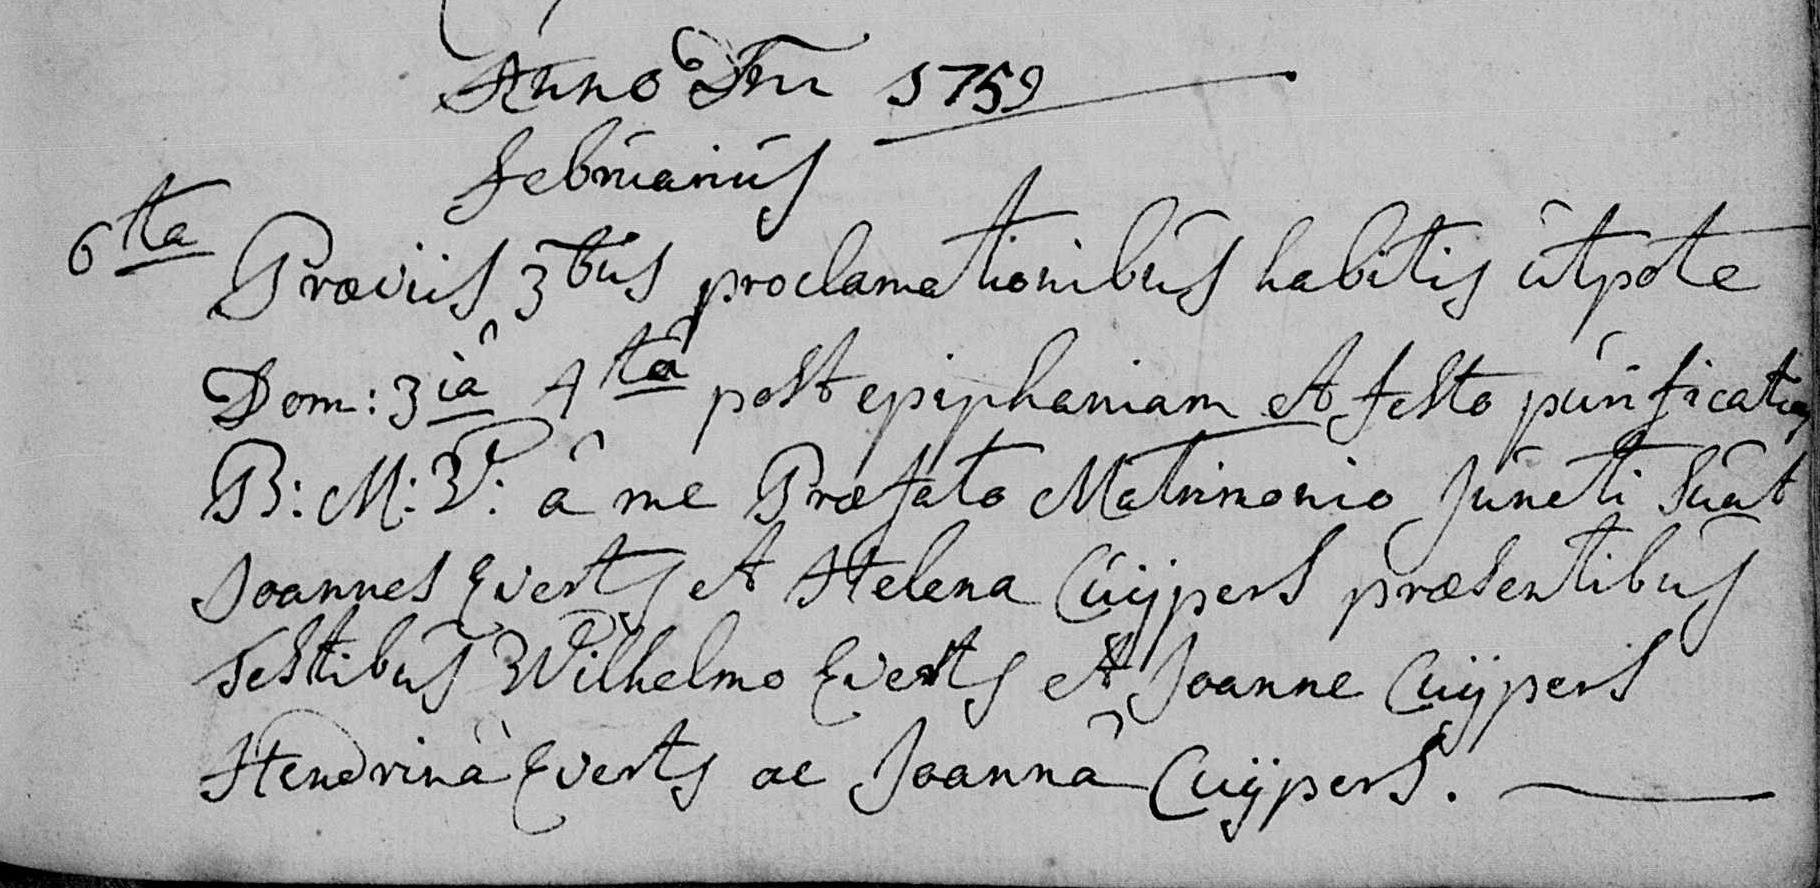 Anno Dni 1759
februarius
6ta Præviis 3bus proclamationibus habitis utpote
Dom: 3iâ 4tâ post epiphaniam et festo purificatio
B: M: V: â me Præfato Matrimonio Juncti Sunt
Joannes Everts et Helena Cuÿpers præsentibus
Testibus Wilhelmo Everts et Joanne Cuÿpers
Hendrinâ Everts ac Joannâ Cuÿpers.